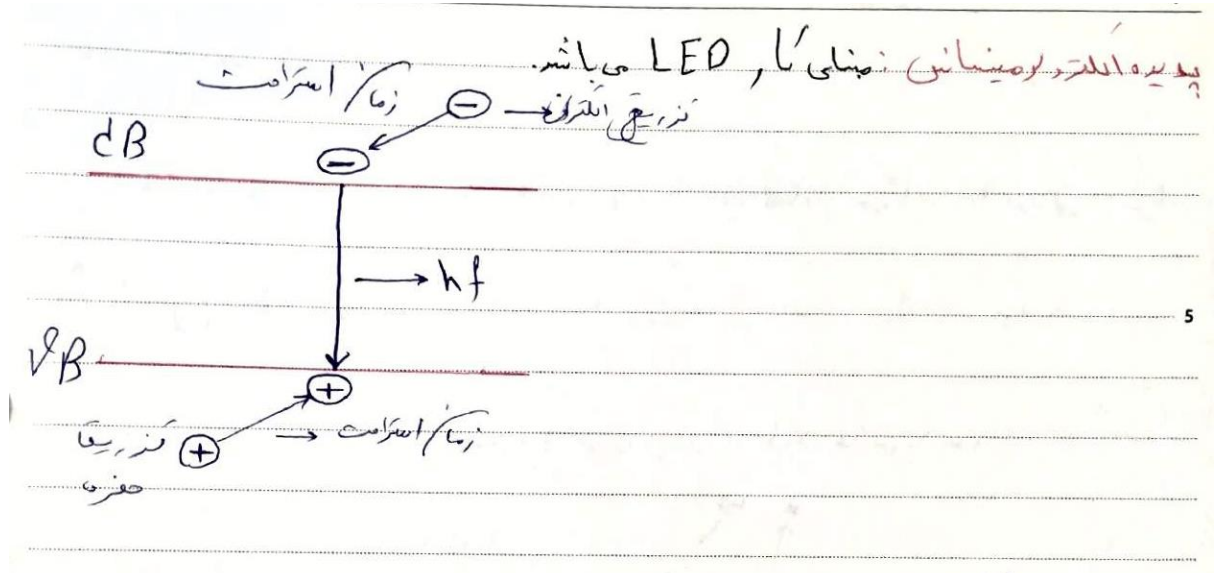 پدیده الکترولومینسانس : مبنای کار LED می باشد.
زمان استراحت
تزریق الکترون
CB
hf
5
VB
زمان استراحت
تزریق
حفره